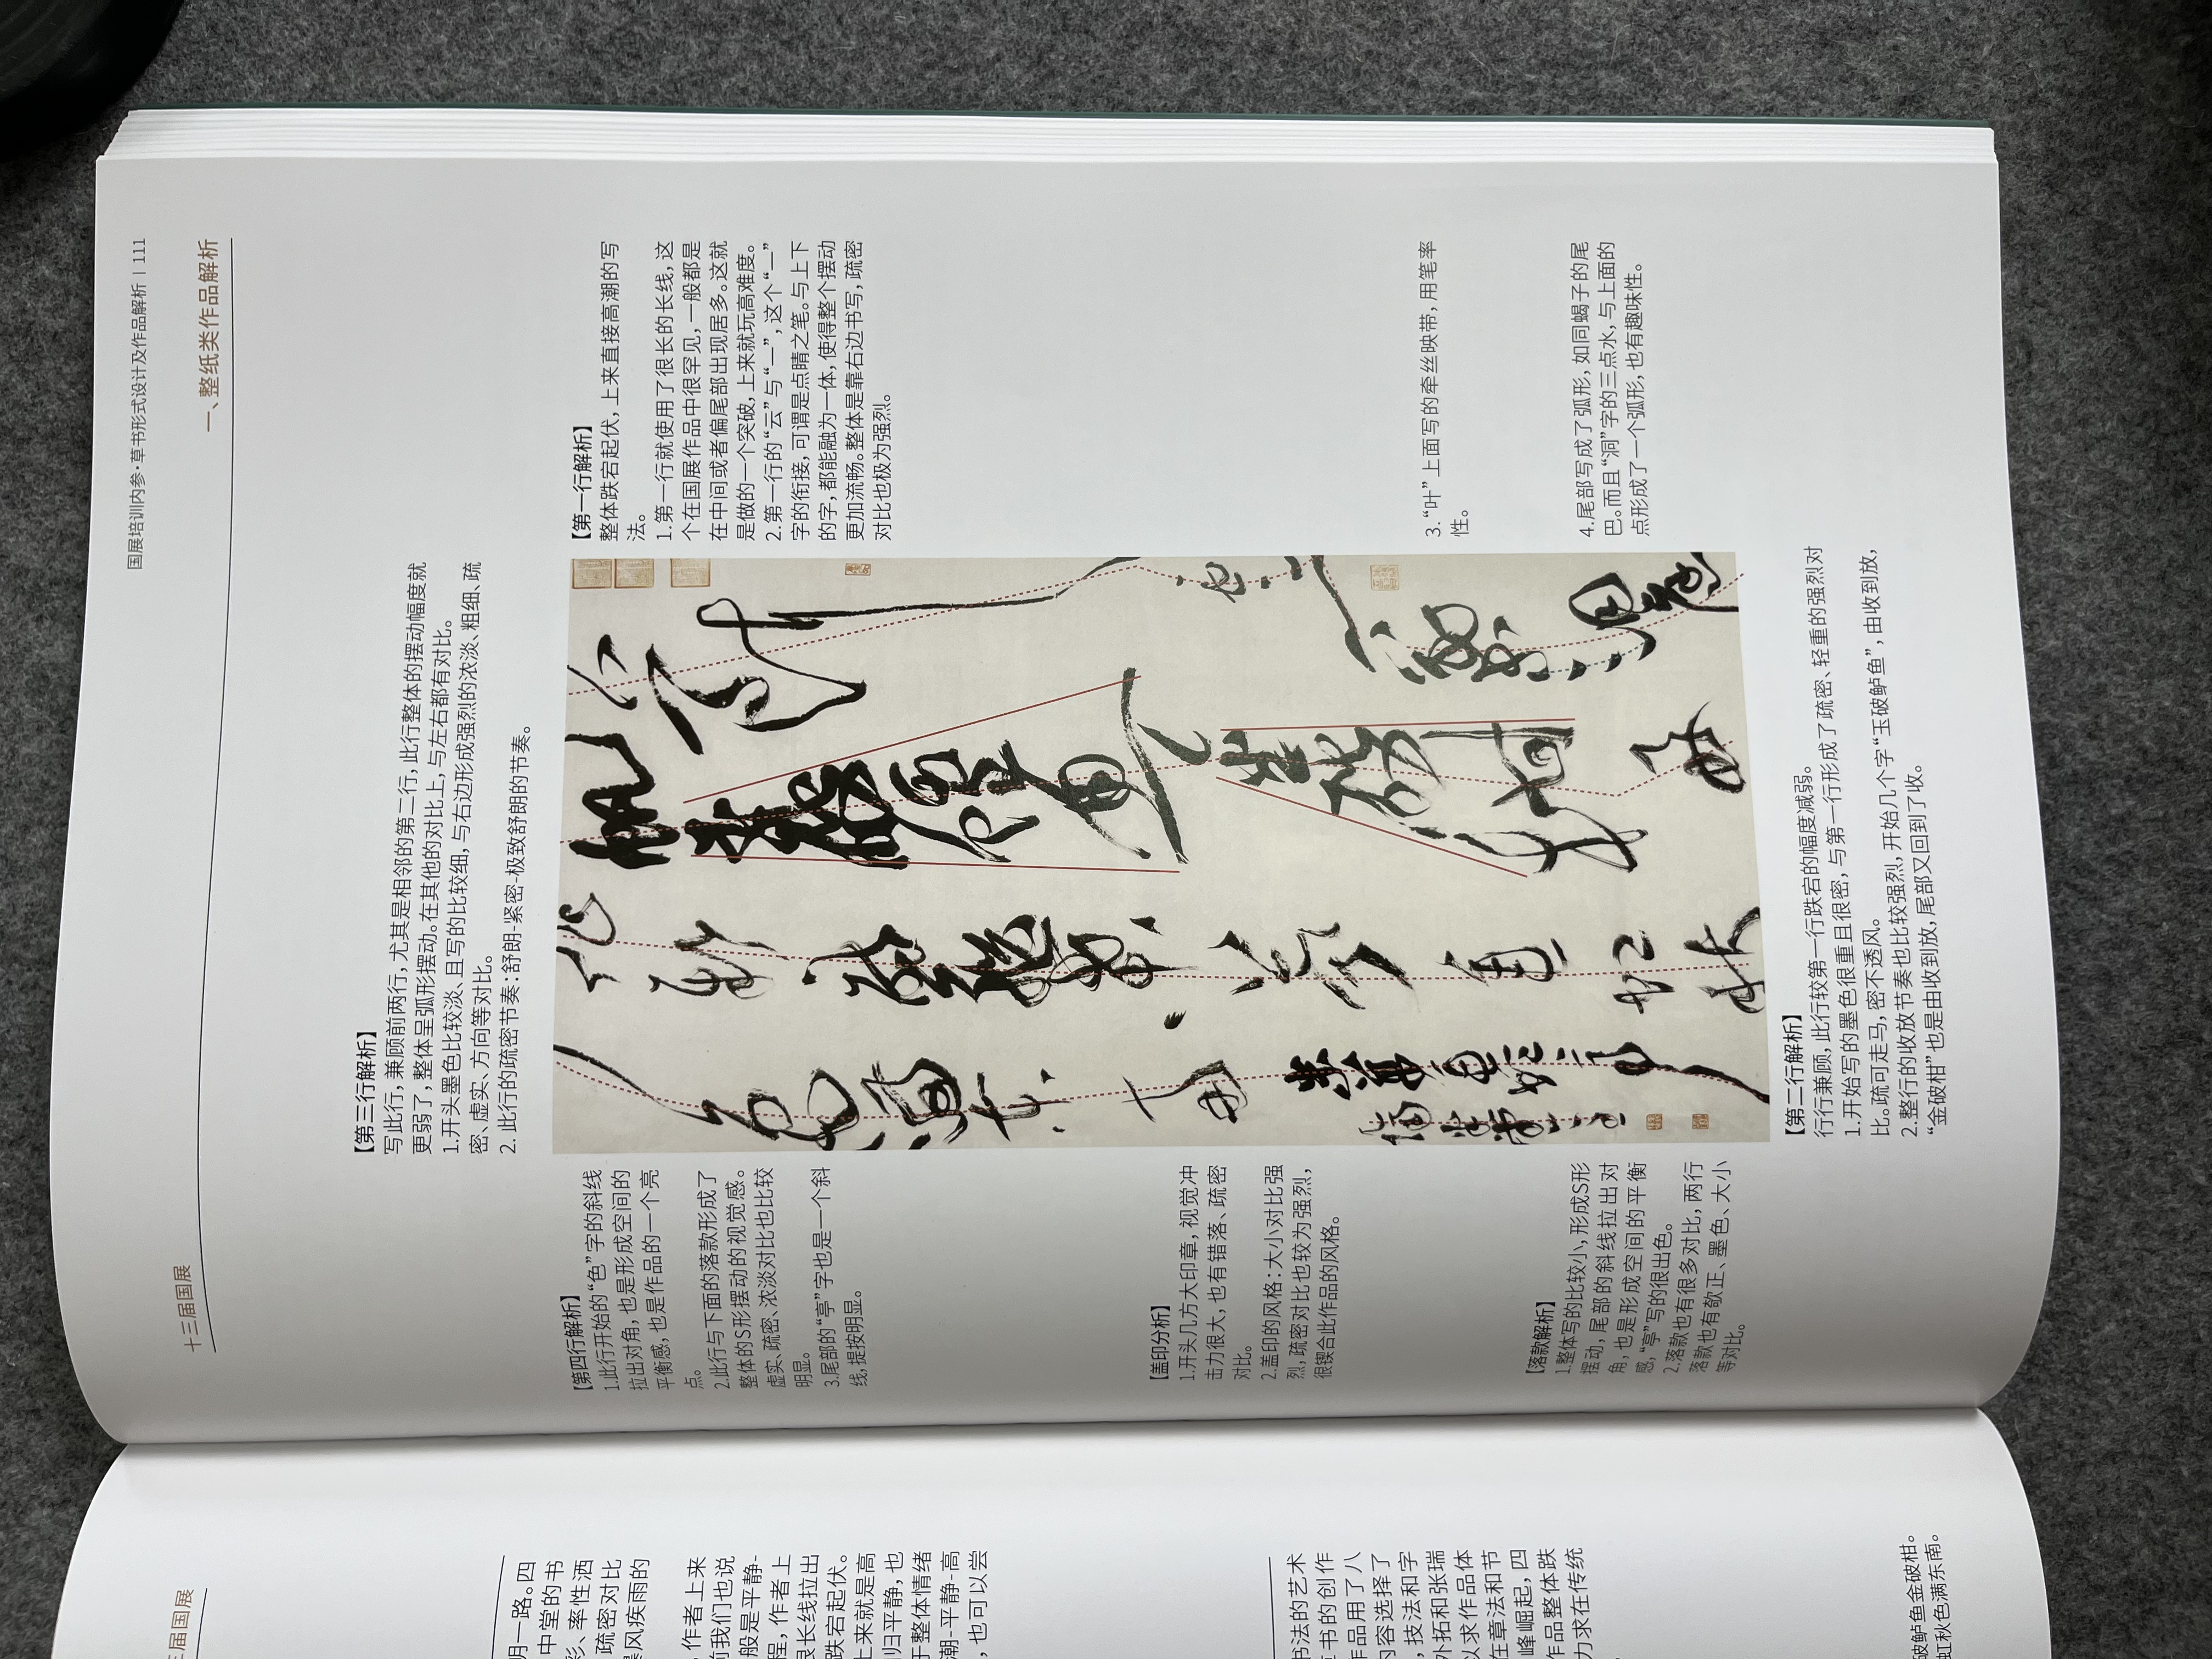 十三届国展
国展培训内参·草书形式设计及作品解析 | 111
一、整纸类作品解析
【第三行解析】
写此行，兼顾前两行，尤其是相邻的第二行，此行整体的摆动幅度就
更弱了，整体呈弧形摆动。在其他的对比上，与左右都有对比。
1.开头墨色比较淡、且写的比较细，与右边形成强烈的浓淡、粗细、疏
密、虚实、方向等对比。
2. 此行的疏密节奏：舒朗-紧密-极致舒朗的节奏。
【第四行解析】
1.此行开始的“色”字的斜线
拉出对角，也是形成空间的
平衡感，也是作品的一个亮
点。
2.此行与下面的落款形成了
整体的S形摆动的视觉感。
虚实、疏密、浓淡对比也比较
明显。
3.尾部的“亭”字也是一个斜
线，提按明显。
【盖印分析】
1.开头几方大印章，视觉冲
击力很大，也有错落、疏密
对比。
2.盖印的风格：大小对比强
烈，疏密对比也较为强烈，
很锲合此作品的风格。
【落款解析】
1.整体写的比较小，形成S形
摆动，尾部的斜线拉出对
角，也是形成空间的平衡
感，“亭”写的很出色。
2.落款也有很多对比，两行
落款也有欹正、墨色、大小
等对比。
【第一行解析】
整体跌宕起伏，上来直接高潮的写
法。
1.第一行就使用了很长的长线，这
个在国展作品中很罕见，一般都是
在中间或者偏尾部出现居多。这就
是做的一个突破，上来就玩高难度。
2.第一行的“云”与“一”，这个“一”
字的衔接，可谓是点睛之笔。与上下
的字，都能融为一体，使得整个摆动
更加流畅。整体是靠右边书写，疏密
对比也极为强烈。
3.“叶”上面写的牵丝映带，用笔率
性。
4.尾部写成了弧形，如同蝎子的尾
巴。而且“洞”字的三点水，与上面的
点形成了一个弧形，也有趣味性。
【第二行解析】
行行兼顾，此行较第一行跌宕的幅度减弱。
1.开始写的墨色很重且很密，与第一行形成了疏密、轻重的强烈对
比。疏可走马，密不透风。
2.整行的收放节奏也比较强烈，开始几个字“玉破鲈鱼”，由收到放，
“金破柑”也是由收到放，尾部又回到了收。
届国展
明一路。四
中堂的书
彩、率性洒
疏密对比
暴风疾雨的
，作者上来
前我们也说
般是平静-
程，作者上
很长线拉出
跌宕起伏。
上来就是高
归平静，也
于整体情绪
潮-平静-高
，也可以尝
书法的艺术
草书的创作
作品用了八
内容选择了
，技法和字
外拓和张瑞
以求作品体
在章法和节
峰崛起，四
作品整体跌
力求在传统
破鲈鱼金破柑。
虹秋色满东南。